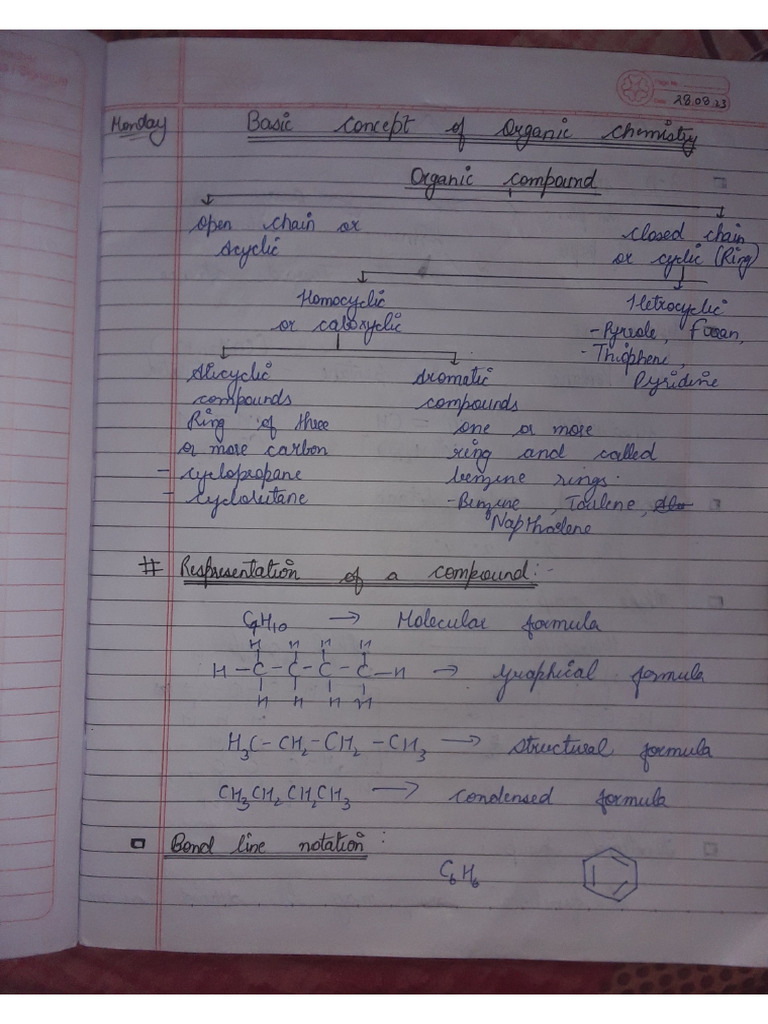 Page No.
Date 28.08.23
Monday
Basic concept of Organic chemistry
Organic compound
open chain or
Acyclic
closed chain
or cyclic (Ring)
Homocyclic
or caboxyclic
Hetrocyclic
- Pyrrole, furan,
- Thiophene,
Pyridine
Alicyclic
compounds
Ring of three
or more carbon
- cyclopropane
- cyclobutane
Aromatic
compounds
one or more
ring and called
benzine rings.
- Benzine, Toulene,
Napthalene
# Respresentation of a compound:-
C4H10 → Molecular formula
H H H H
H - C - C - C - C - H → Graphical formula
H H H H
H3C - CH2 - CH2 - CH3 → Structural formula
CH3CH2CH2CH3 → Condensed formula
Bond line notation:
C6H6